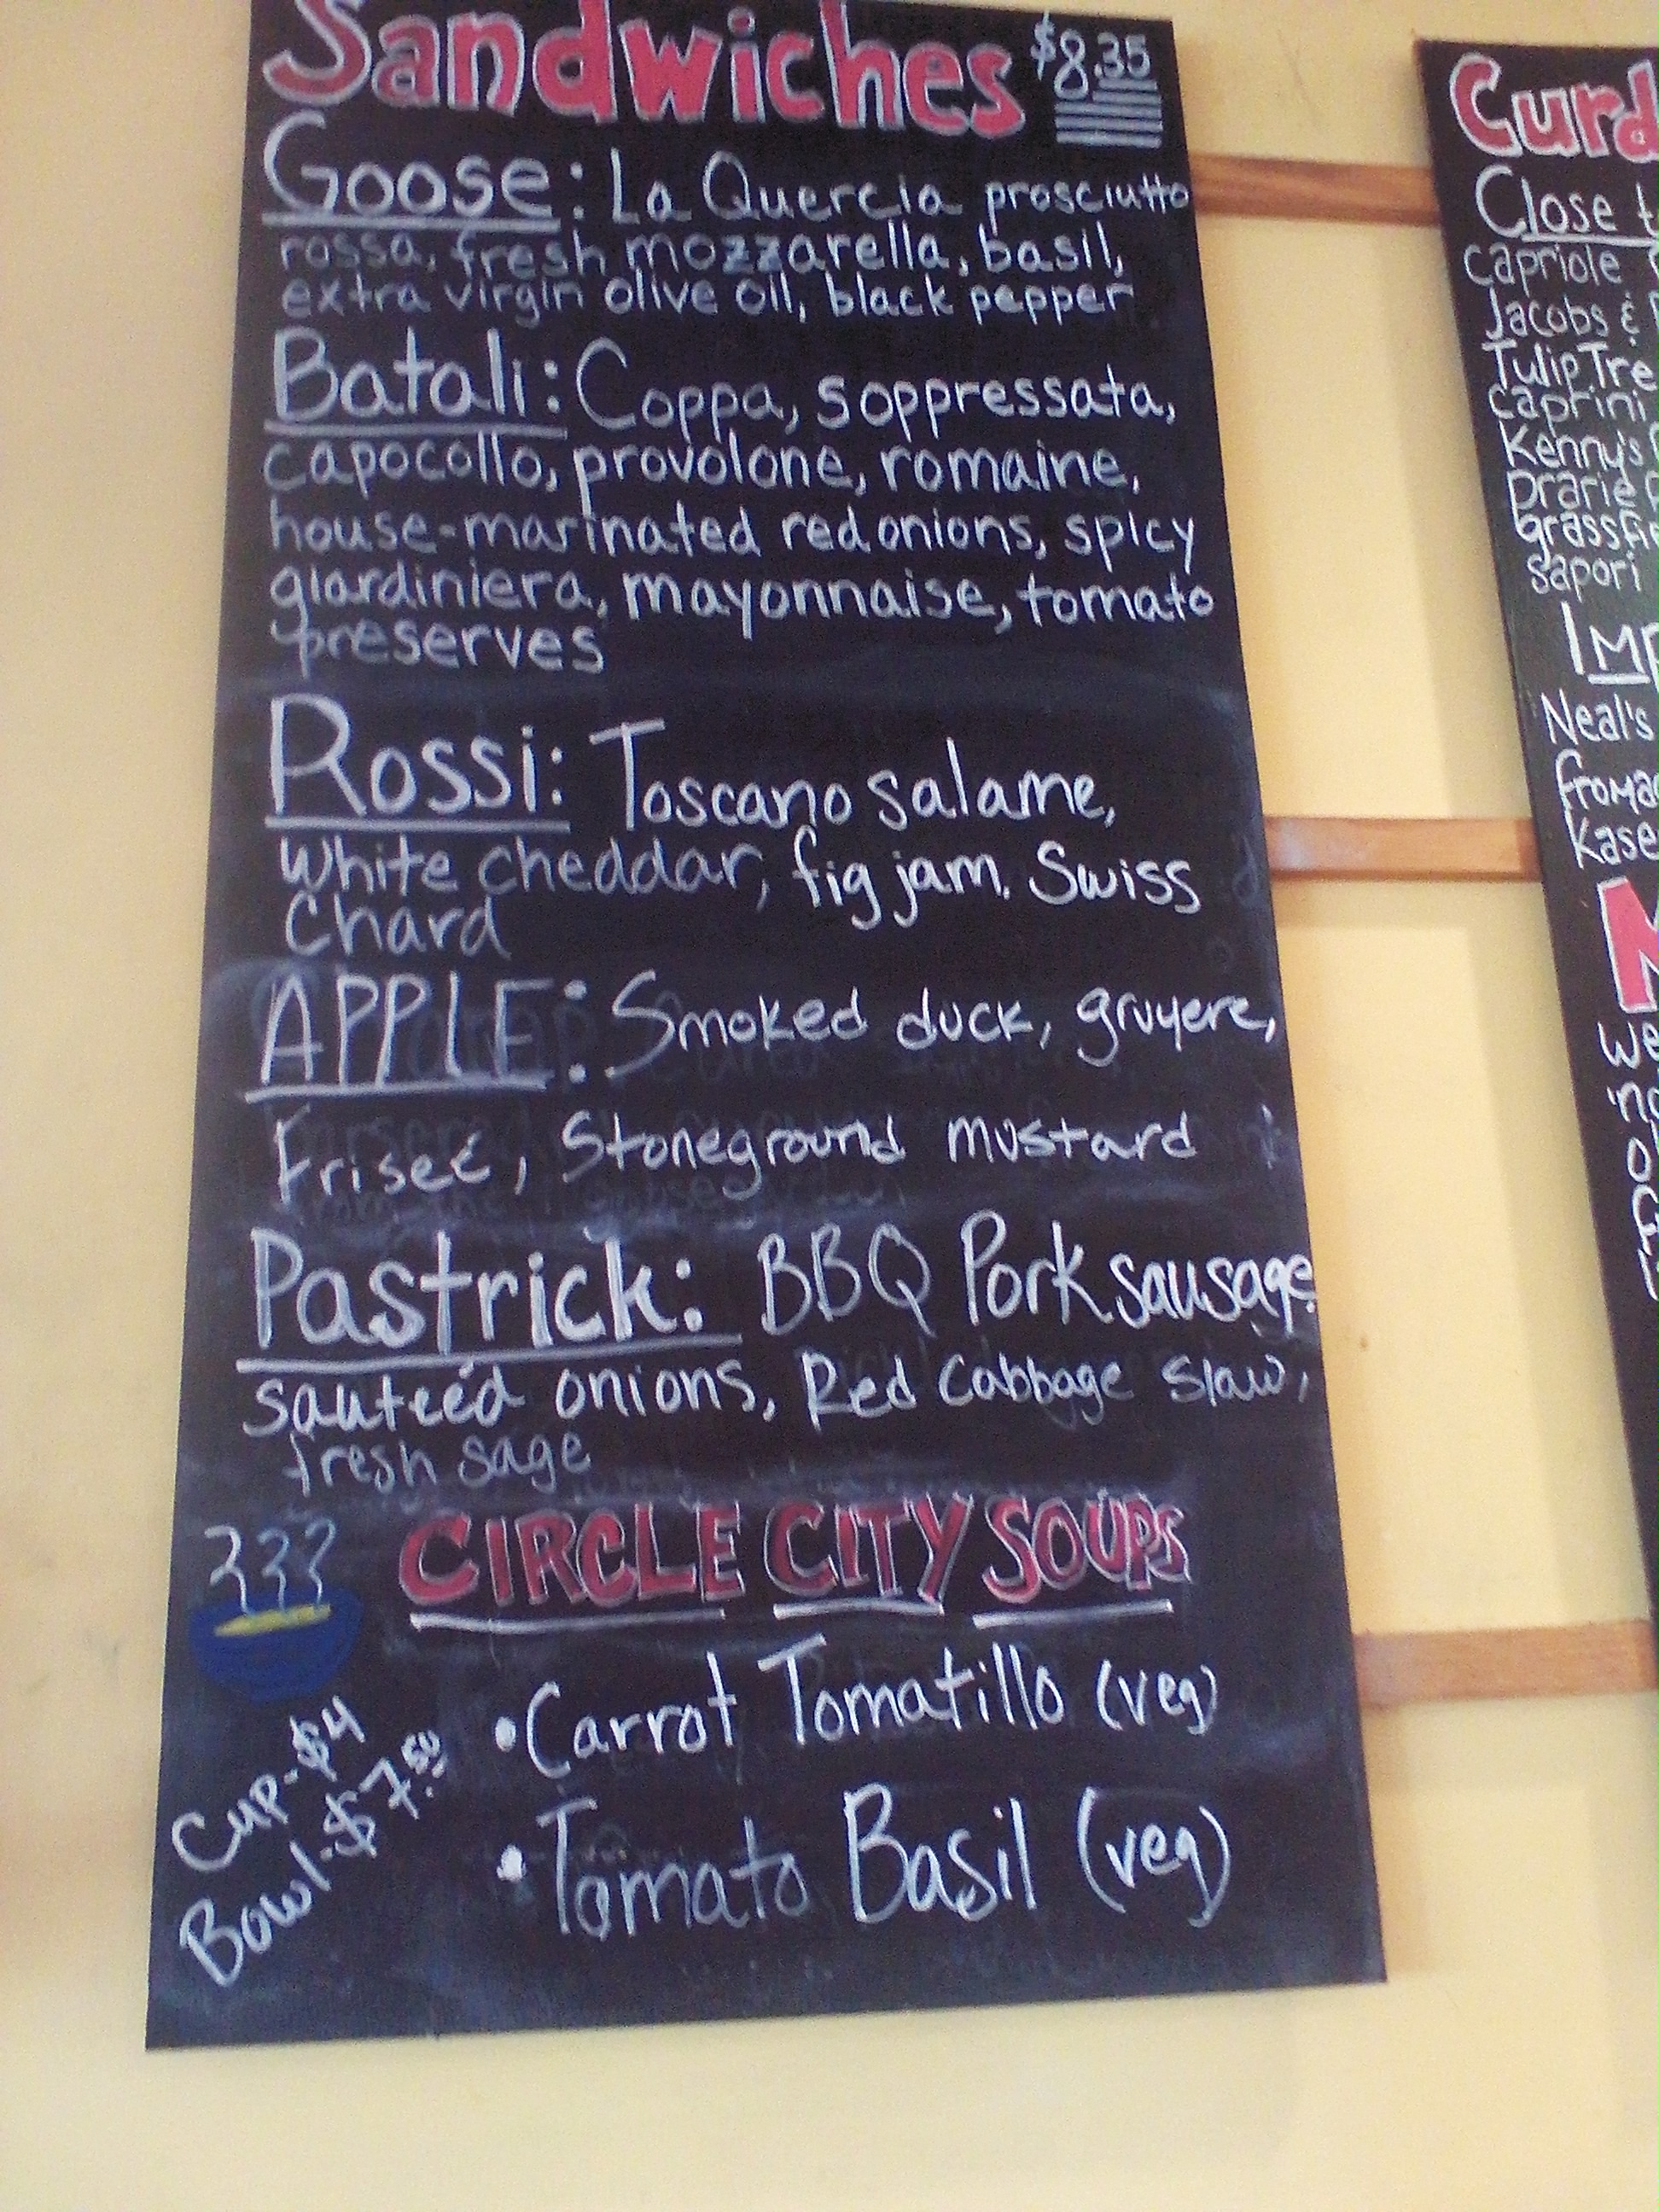 Sandwiches $8.35
Goose: La Quercia prosciutto
rossa, fresh mozzarella, basil,
extra virgin olive oil, black pepper
Batali: Coppa, soppressata,
capocollo, provolone, romaine,
house-marinated red onions, spicy
giardiniera, mayonnaise, tomato
preserves
Rossi: Toscano salame,
white cheddar, fig jam, Swiss
Chard
APPLE: Smoked duck, gruyere,
Friseé, Stoneground mustard
Pastrick: BBQ Pork sausage,
sauteéd onions, Red Cabbage slaw,
fresh sage
CIRCLE CITY SOUPS
Cup-$4
Bowl-$7.50
•Carrot Tomatillo (veg)
•Tomato Basil (veg)
Curd
Close t
capriole
Jacobs &
Tulip Tre
caprini
Kenny's
prarie
grassfie
sapori
Imp
Neal's
fromag
Kase
M
we